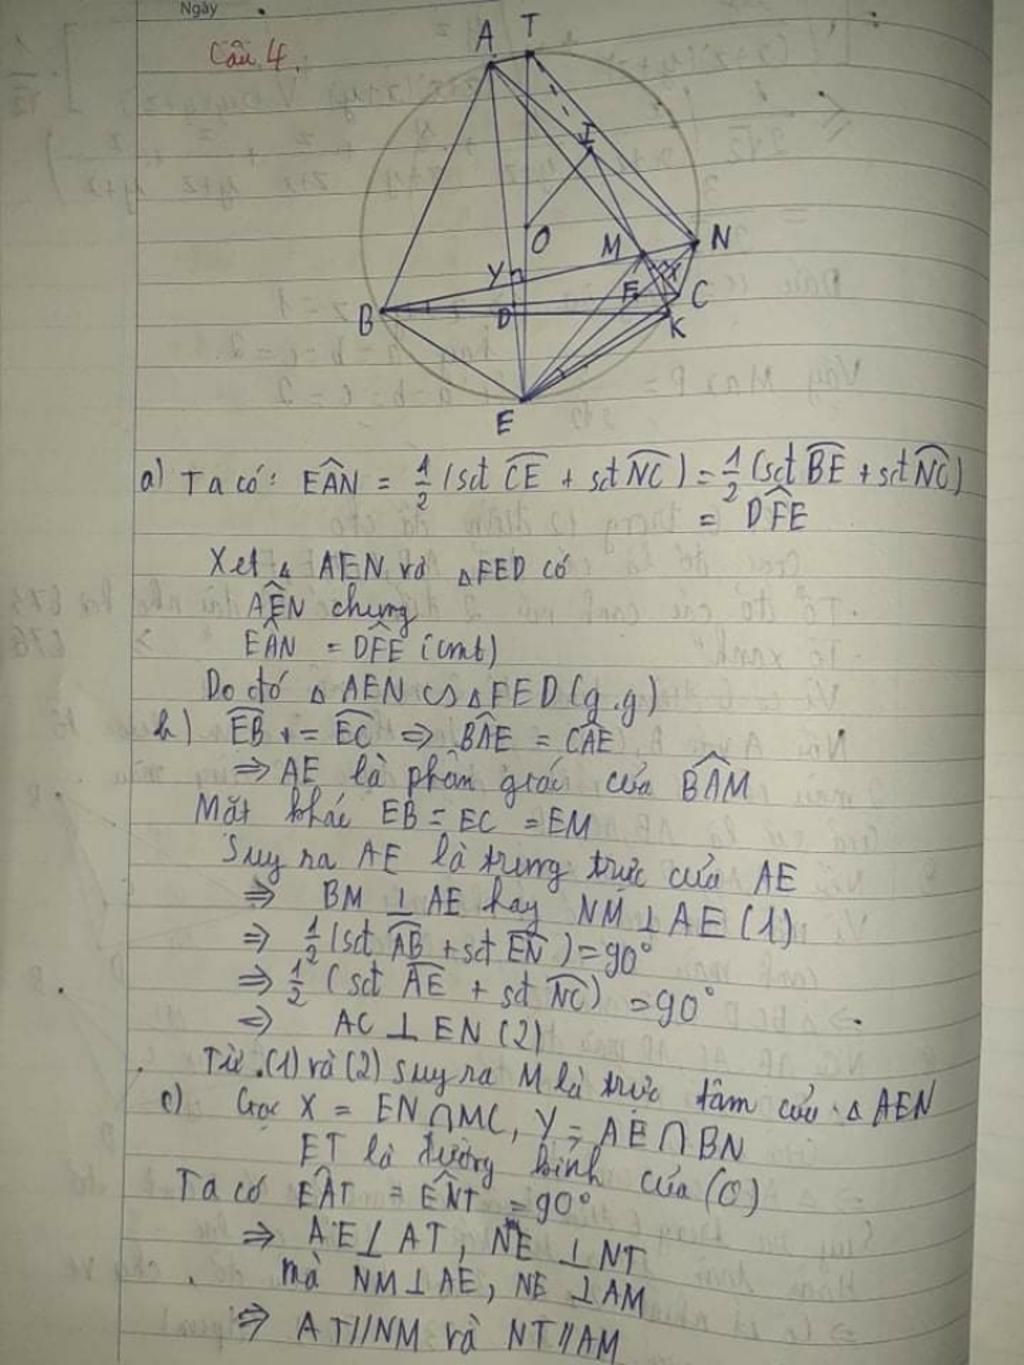 Ngày
Câu 4.
A T
I
O
M
N
Y
X
B
D
F
C
K
E
a) Ta có: EÂN = 1/2 (sđt CE + sđt NC) = 1/2 (sđt BE + sđt NC)
= DFE
Xét △ AEN và △FED có
AÊN chung
EÂN = DFE (cmt)
Do đó △ AEN ∽ △FED (g.g)
b) EB = EC ⇒ BÂE = CÂE
⇒ AE là phân giác của BÂM
Mặt khác EB = EC = EM
Suy ra AE là trung trực của AE
⇒ BM ⊥ AE hay NM ⊥ AE (1)
⇒ 1/2 (sđt AB + sđt EN) = 90°
⇒ 1/2 (sđt AE + sđt NC) = 90°
⇒ AC ⊥ EN (2)
Từ (1) và (2) suy ra M là trực tâm của △ AEN
c) Gọi X = EN ∩ MC, Y = AE ∩ BN
ET là đường kính của (O)
Ta có EÂT = ENT = 90°
⇒ AE ⊥ AT, NE ⊥ NT
mà NM ⊥ AE, NE ⊥ AM
⇒ AT // NM và NT // AM